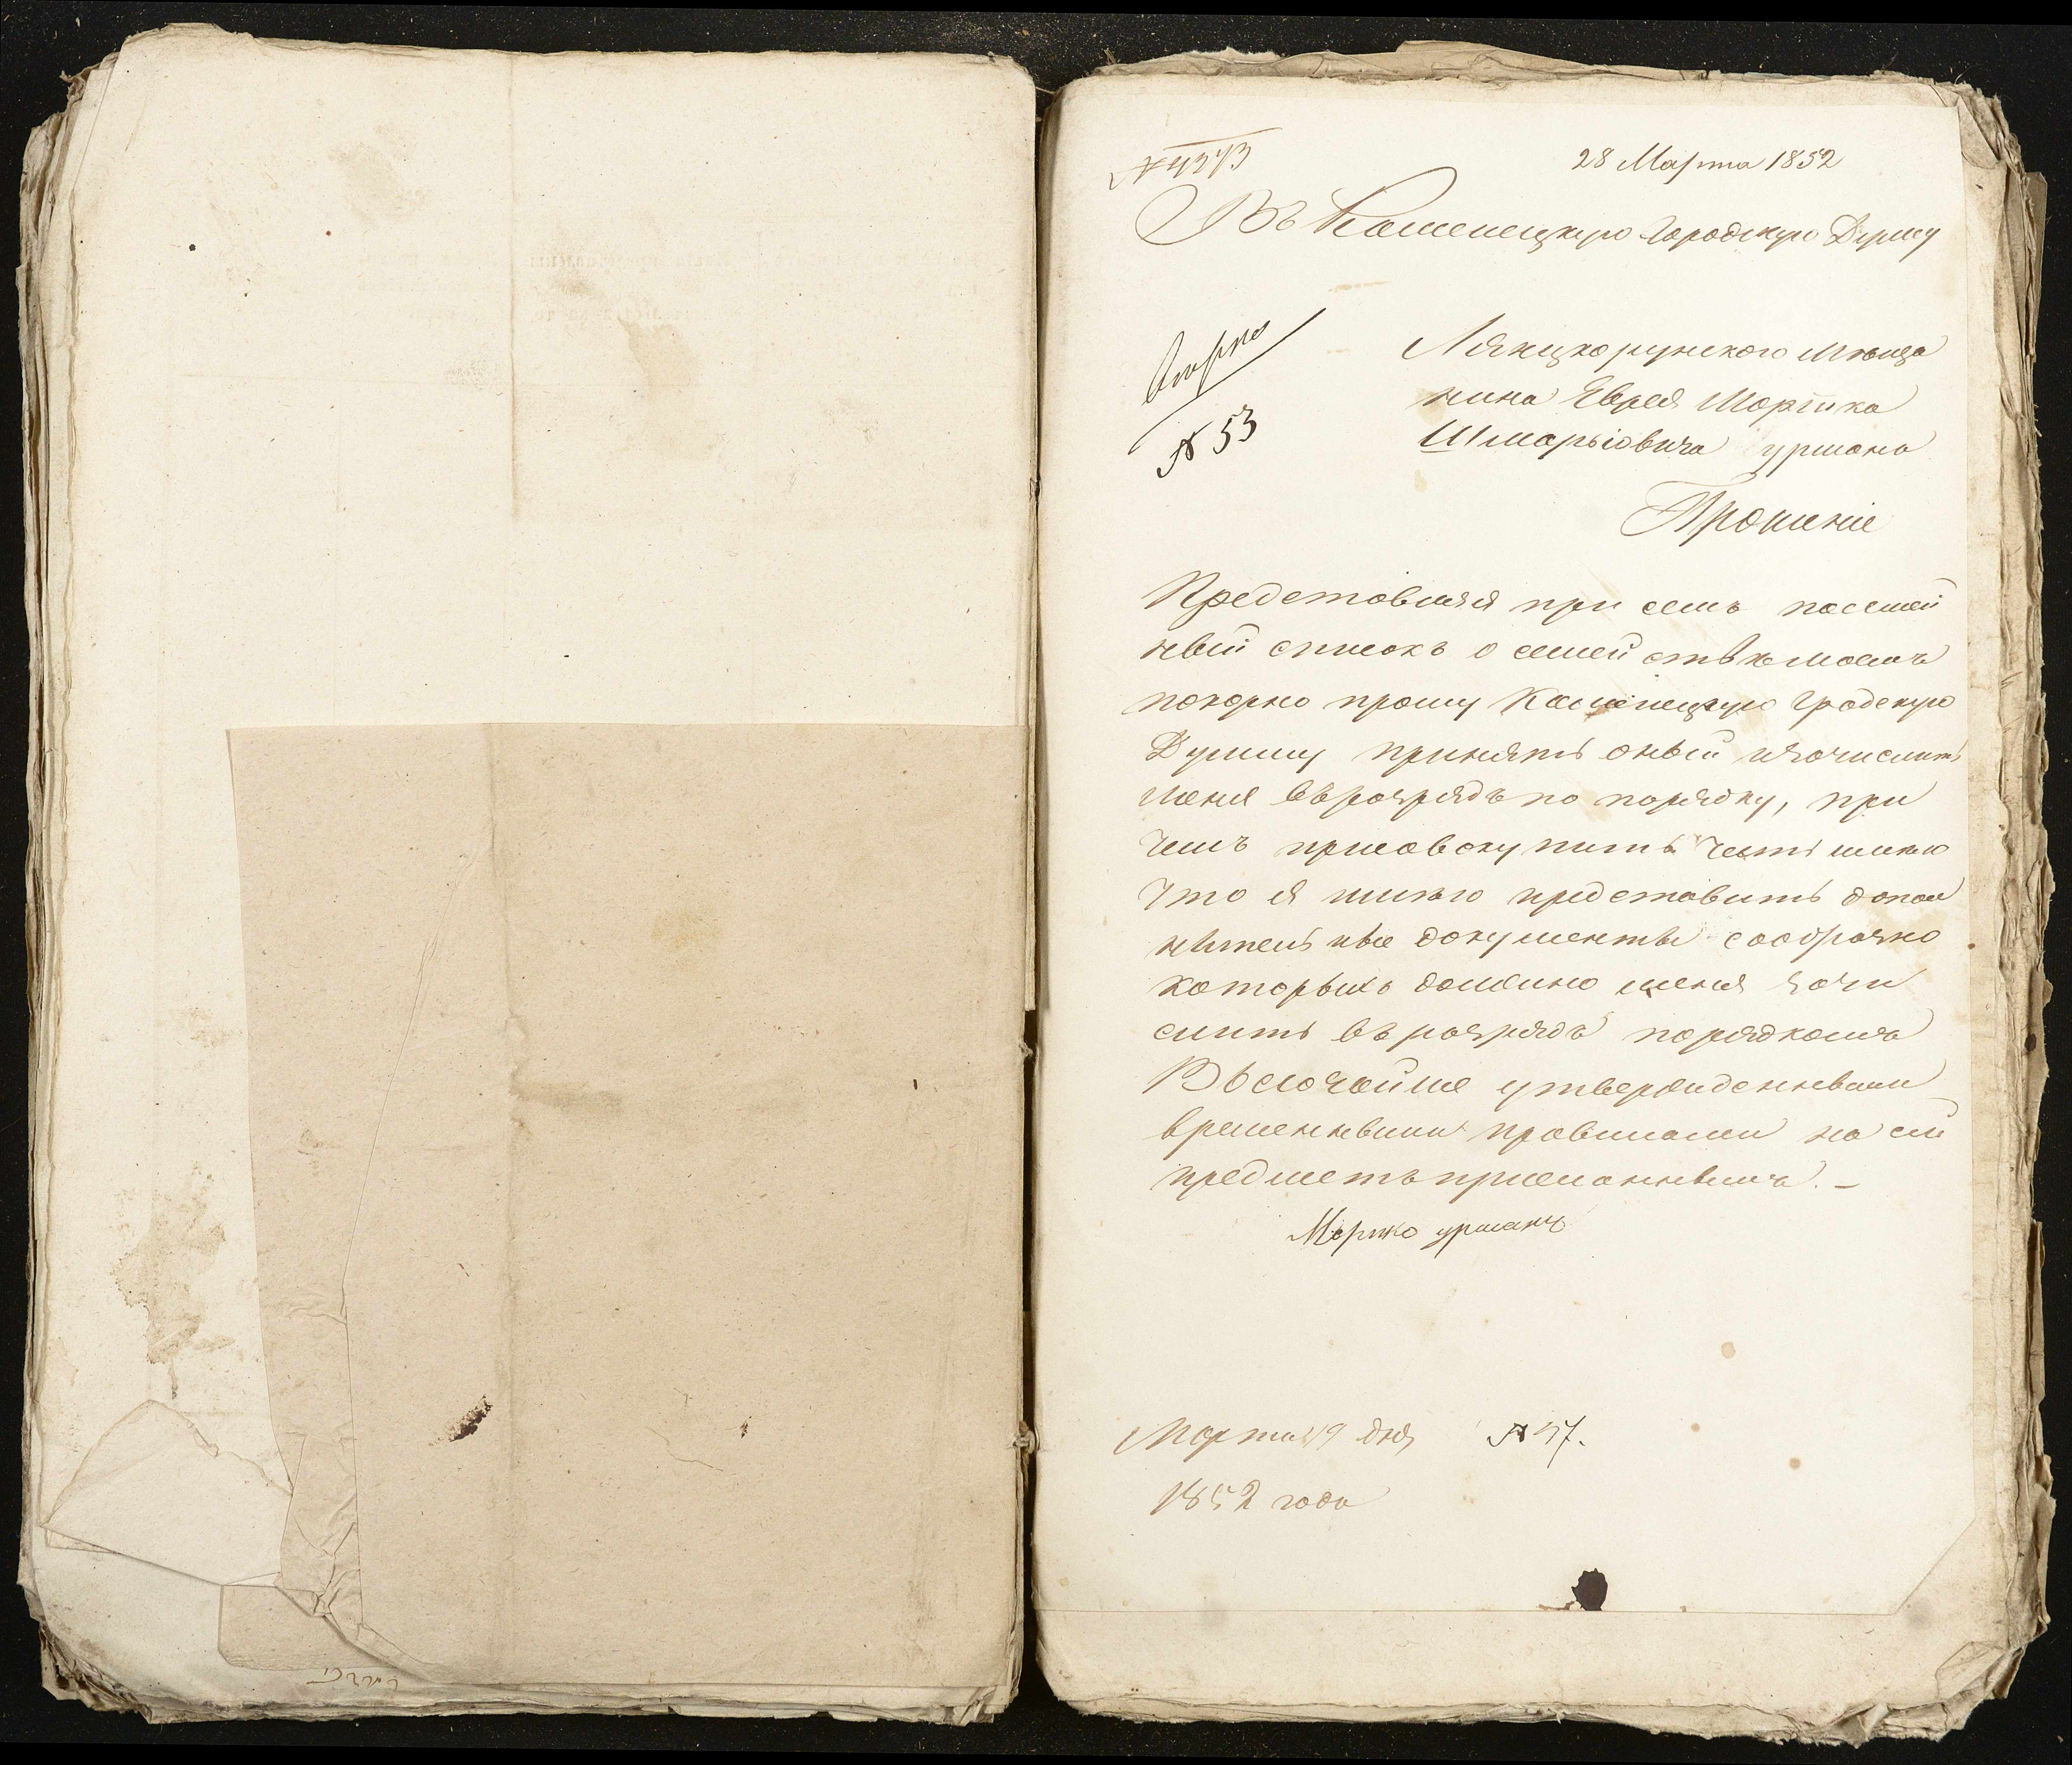 № 4273
28 Марта 1852
Въ Каменецкую Городскую Думу
№ 53
Лянцкорунского мѣща
нина Еврея Моршка
Шмарьіовича урмана
Прошеніе
Представляя при семъ посемей
ный списокъ о семействѣ моемъ
покорно прошу Каменецкую Градскую
Думу принять оный и зачислить
меня въ разрядъ по порядку, при
чемъ присовокупить честь имею
что я имею представить допол
нительные документы сообразно
которыхъ должно меня зачи
слить въ разрядъ порядкомъ
Высочайше утвержденными
временными правилами на сей
предметъ приеманнымъ. –
Моршко урманъ
Марта 19 дня № 47.
1852 года